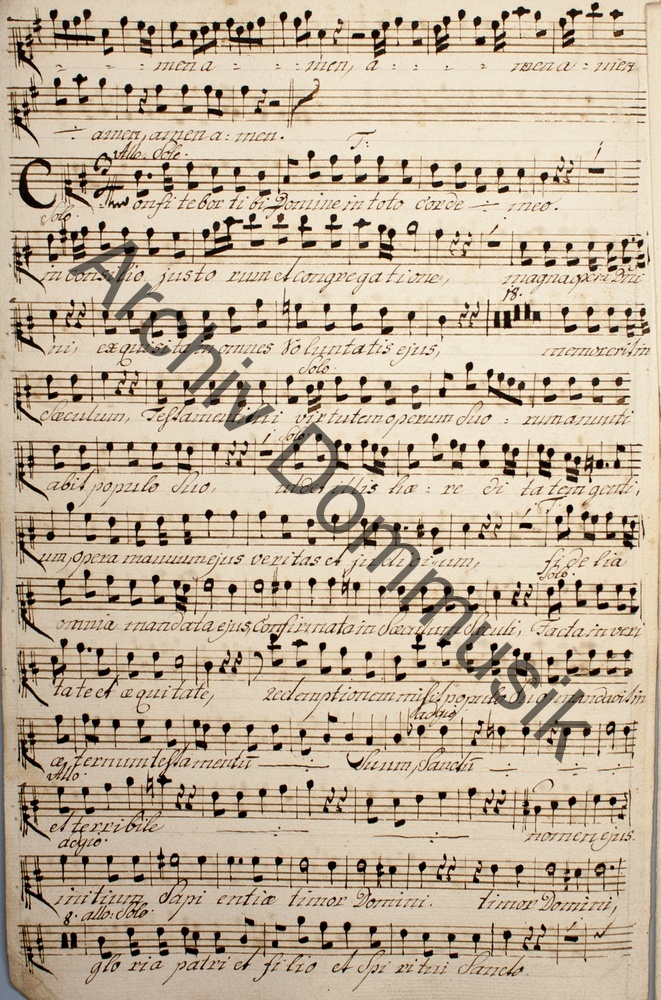 - - men a - - men, a - - - men a - men
amen, amen a: men.
Allo. Solo. T:
Confitebor tibi Domine in toto Corde ÷ meo.
Solo
in consilio justo rum et congregatione, magna opera Dni
18.
ni, exquisita in omnes Voluntatis ejus, memor erit in
Solo.
Sæculum, Testamenti sui virtutem operum Suo: rum anunti
Solo
abit populo Suo, ut det illis hæ: re di tatem genti,
T.
um, opera manuum ejus veritas et judicium, fi de lia
Solo.
omnia mandata ejus, Confirmata in Sæculum Sæculi, Facta in veri
tate et æquitate, redemptionem misit populo Suo, mandavit in
adagio
æternum testamentū ÷ Suum, Sanctū ÷ ÷
Allo.
et terribile ÷ ÷ nomen ejus.
adgio.
initium Sapi entiæ timor Domini. timor Domini,
8. allo: Solo.
glo ria patri et filio et Spi ritui Sancto.
Archiv Dommusik